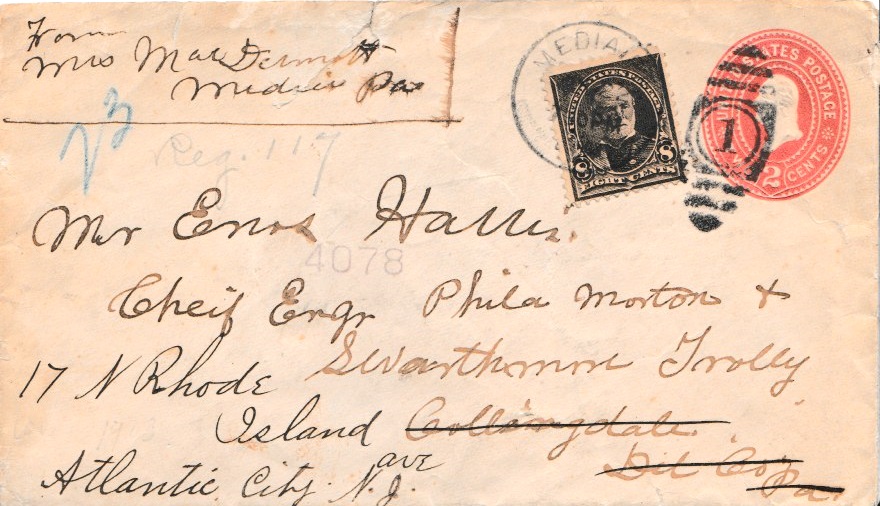 From
Mrs MacDermott
Media Pa
23
Reg. 117
MEDIA
UNITED STATES POSTAGE
8 8
EIGHT CENTS
1
UNITED STATES POSTAGE
2 CENTS
Mr Enos Harris
4078
Cheif Engr Phila Morton +
Swarthmore Trolly
17 N Rhode
Island ave
Collingdale
Del Co
Pa
Atlantic City. N.J.